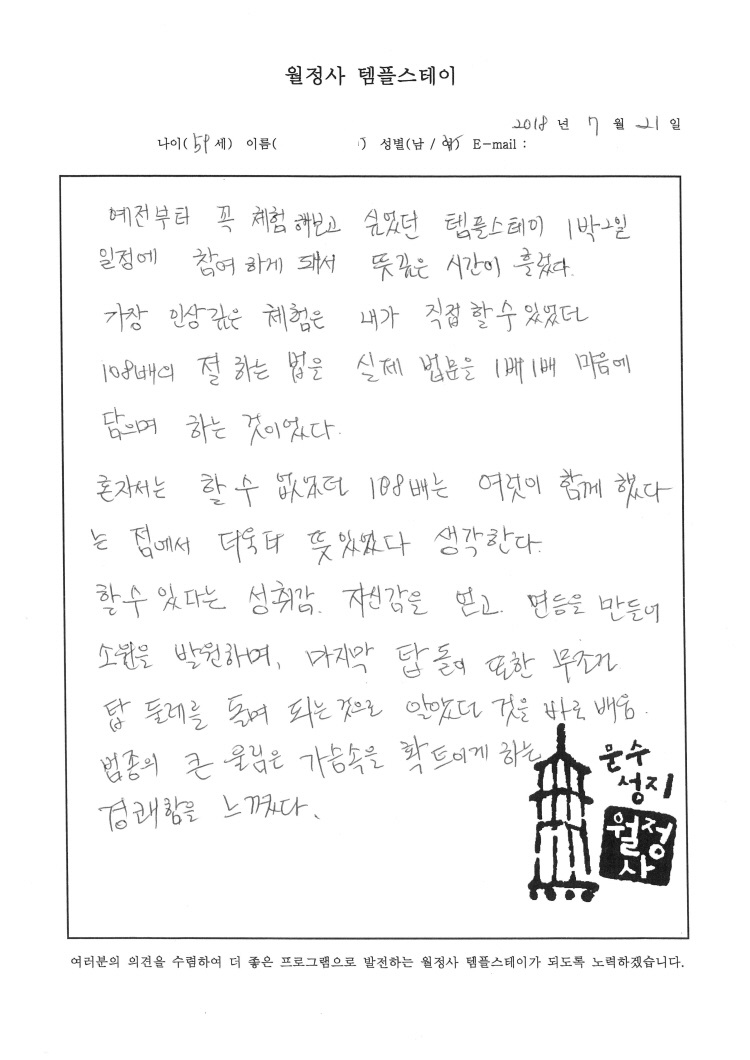 월정사 템플스테이
2018 년 7 월 21 일
나이(59세) 이름( ) 성별(남 / 여) E-mail :
예전부터 꼭 체험 해보고 싶었던 템플스테이 1박2일
일정에 참여 하게 돼서 뜻깊은 시간이 흘렀다.
가장 인상깊은 체험은 내가 직접 할 수 있었던
108배의 절 하는 법을 실제 법문을 1배 1배 마음에
담으며 하는 것이었다.
혼자서는 할 수 없었던 108배는 여럿이 함께 했다
는 점에서 더욱더 뜻있었다 생각한다.
할 수 있다는 성취감. 자신감을 얻고. 연등을 만들어
소원을 발원하며, 마지막 탑돌이 또한 무조건
탑 둘레를 돌며 되는것으로 알았던 것을 바로 배움.
범종의 큰 울림은 가슴속을 확 트이게 하는
경쾌함을 느꼈다.
문수
성지
월정
사
여러분의 의견을 수렴하여 더 좋은 프로그램으로 발전하는 월정사 템플스테이가 되도록 노력하겠습니다.